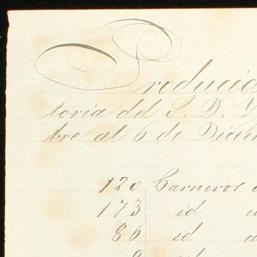 Producid
toria del S. D. Y
bre al 6 de Dicie
120 Carneros
173 id
86 id